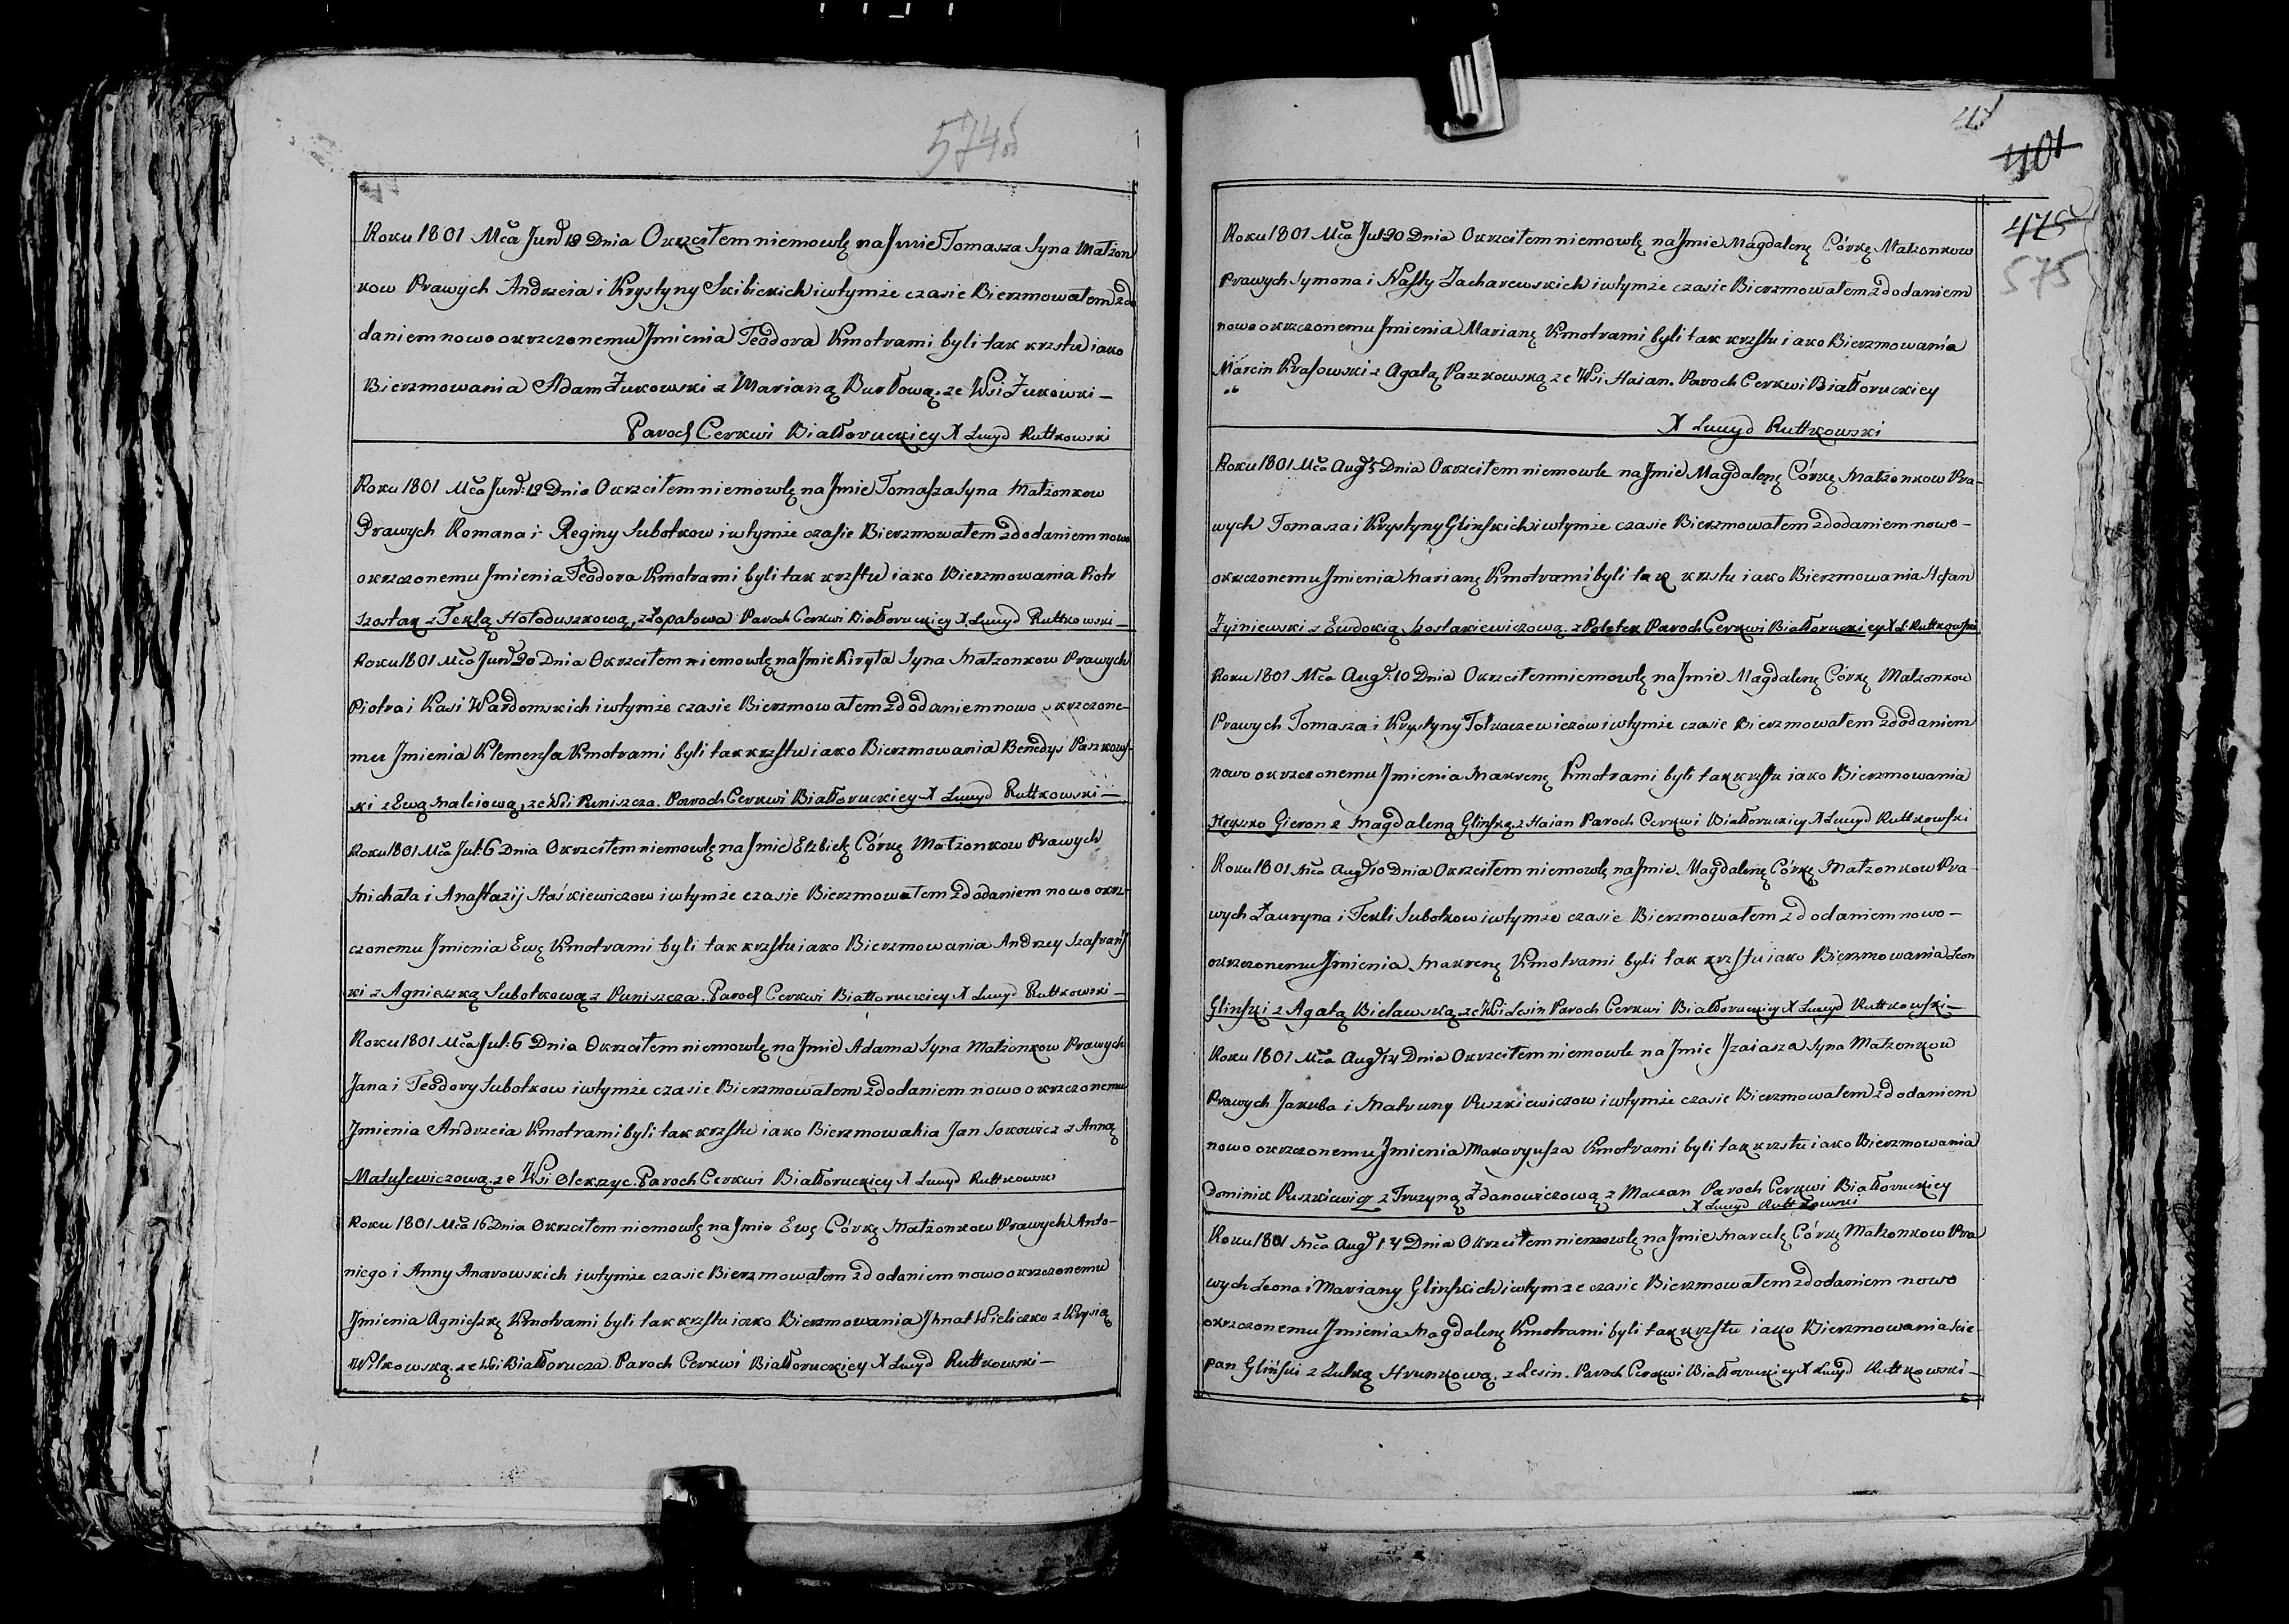 574
Roku 1801 Mca Jun 12 Dnia Okrzciłem niemowlę na Jmie Tomasza Syna Małżon
kow Prawych Andrzeia i Krystyny Skibickich i wtymże czasie Bierzmowałem z do
daniem nowo okrzczonemu Jmienia Teodora Kmotrami byli tak krzstu iako
Bierzmowania Adam Żukowski z Marianą Burłową. ze Wsi Żukowki —
Paroch Cerkwi Białłoruckiey X Lwuyd Ruttkowski
Roku 1801 Mca Jun: 12 Dnia Okrzciłem niemowlę na Jmie Tomasza Syna Małżonkow
Prawych Romana i Reginy Subotkow i wtymże czasie Bierzmowałem z dodaniem nowo
okrzczonemu Jmienia Teodora Kmotrami byli tak krzstu iako Bierzmowania Piotr
Szostak z Teklą Hołoduszkową, z Łopatowa Paroch Cerkwi Białłoruckiey X Lwuyd Ruttkowski —
Roku 1801 Mca Jun 20 Dnia Okrzciłem niemowlę na Jmie Kiryła Syna Małżonkow Prawych
Piotra i Kasi Wardomskich i wtymże czasie Bierzmowałem z dodaniem nowo okrzczone-
mu Jmienia Klemensa Kmotrami byli tak krzstu iako Bierzmowania Benedys Paszkows-
ki z Ewą Malciową, ze Wsi Puniszcza. Paroch Cerkwi Białłoruckiey X Lwuyd Ruttkowski —
Roku 1801 Mca Jul: 6 Dnia Okrzciłem niemowlę na Jmie Elzbietę Córkę Małżonkow Prawych
Michała i Anastazij Staśkiewiczow i wtymże czasie Bierzmowałem z dodaniem nowo okrz-
czonemu Jmienia Ewę Kmotrami byli tak krzstu iako Bierzmowania Andrzey Szafrańs
ki z Agnieszką Subotkową z Puniszcza. Paroch Cerkwi Białłoruckiey X Lwuyd Ruttkowski —
Roku 1801 Mca Jul: 6 Dnia Okrzciłem niemowlę na Jmie Adama Syna Małżonkow Prawych
Jana i Teodory Subotkow i wtymże czasie Bierzmowałem z dodaniem nowo okrzczonemu
Jmienia Andrzeia Kmotrami byli tak krzstu iako Bierzmowania Jan Sokowicz z Anną
Matusewiczową. ze Wsi Olekszyc. Paroch Cerkwi Białłoruckiey X Lwuyd Ruttkowski
Roku 1801 Mca 16 Dnia Okrzciłem niemowlę na Jmie Ewę Córkę Małżonkow Prawych Anto-
niego i Anny Anarowskich i wtymże czasie Bierzmowałem z dodaniem nowo okrzczonemu
Jmienia Agnieszkę Kmotrami byli tak krzstu iako Bierzmowania Jhnat Wieliczko z Krysią
Wilkowską. ze Wsi Białłorucza. Paroch Cerkwi Białłoruckiey X Lwuyd Ruttkowski —
401
475
575
Roku 1801 Mca Jul 20 Dnia Okrzciłem niemowlę na Jmie Magdalenę Córkę Małżonkow
Prawych Symona i Nasty Zacharewskich i wtymże czasie Bierzmowałem z dodaniem
nowo okrzczonemu Jmienia Marianę Kmotrami byli tak krzstu iako Bierzmowania
Marcin Krasowski z Agatą Paszkowską ze Wsi Haian. Paroch Cerkwi Białłoruckiey
X Lwuyd Ruttkowski
Roku 1801 Mca Aug 5 Dnia Okrzciłem niemowle na Jmie Magdalenę Córkę Małżonkow Pra-
wych Tomasza i Krystyny Glinskich i wtymże czasie Bierzmowałem z dodaniem nowo-
okrzczonemu Jmienia Marianę Kmotrami byli tak krzstu iako Bierzmowania Stefan
Żyźniewski z Ewdokią Szostakiewiczową z Poletek Paroch Cerkwi Białłoruckiey X L: Ruttkowski
Roku 1801 Mca Aug: 10 Dnia Okrzciłem niemowlę na Jmie Magdalenę Córkę Małżonkow
Prawych Tomasza i Krystyny Tołkaczewiczow i wtymże czasie Bierzmowałem z dodaniem
nowo okrzczonemu Jmienia Makrenę Kmotrami byli tak krzstu iako Bierzmowania
Hryszko Gieron z Magdaleną Glinską z Haian Paroch Cerkwi Białłoruckiey X Lwuyd Ruttkowski
Roku 1801 Mca Aug 10 Dnia Okrzciłem niemowlę na Jmie Magdalenę Córkę Małżonkow Pra-
wych Łauryna i Tekli Subotkow i wtymże czasie Bierzmowałem z dodaniem nowo-
okrzczonemu Jmienia Makrenę Kmotrami byli tak krzstu iako Bierzmowania Leon
Glinski z Agatą Bielawską ze Wsi Lesin Paroch Cerkwi Białłoruckiey X Lwuyd Ruttkowski —
Roku 1801 Mca Aug 14 Dnia Okrzciłem niemowle na Jmie Jzaiasza Syna Małżonkow
Prawych Jakuba i Matruny Puszkiewiczow i wtymże czasie Bierzmowałem z dodaniem
nowo okrzczonemu Jmienia Makaryusza Kmotrami byli tak krzstu iako Bierzmowania
Dominik Puszkiewicz z Fruzyną Żdanowiczową z Maczan Paroch Cerkwi Białłoruckiey
X Lwuyd Ruttkowski
Roku 1801 Mca Aug 14 Dnia Okrzciłem niemowlę na Jmie Marcelę Córkę Małżonkow Pra
wych Leona i Mariany Glinskich i wtymże czasie Bierzmowałem z dodaniem nowo
okrzczonemu Jmienia Magdalenę Kmotrami byli tak krzstu iako Bierzmowania Scie-
pan Gliński z Zulką Hrunkową, z Lesin. Paroch Cerkwi Białłoruckiey X Lwuyd Ruttkowski —